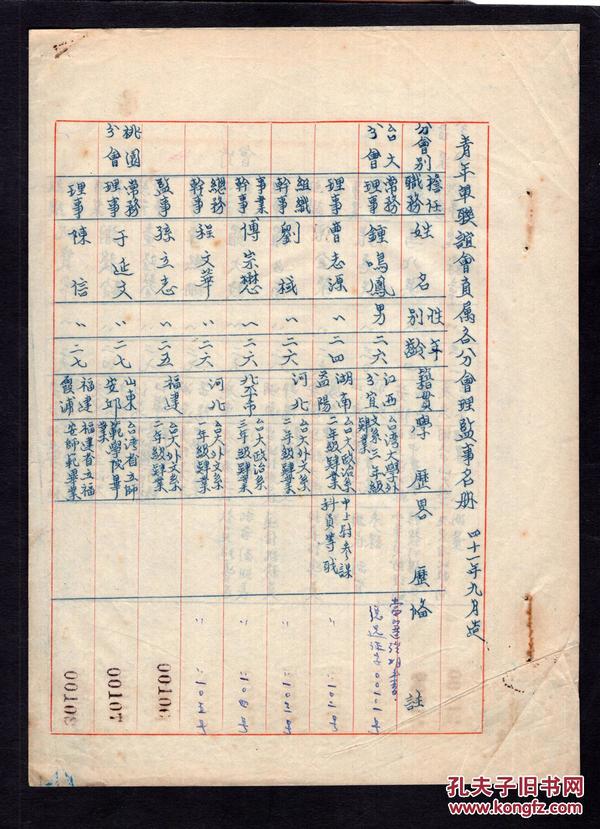 青年軍聯誼會直屬各分會理監事名册
四十一年九月造
分會別 擔任職務 姓名 性別 年齡 籍貫 學歷 畧歷 備註
台大分會 常務理事 鍾鳴鳳 男 二六 江西分宜 台灣大學外文系三年級肄業 00101号
理事 曾志源 〃 二四 湖南益陽 台大政治系二年級肄業 中上尉參謀科員等職 〃101号
組織幹事 劉棫 〃 二六 河北 台大外文系二年級肄業 〃10号
事業幹事 傅宗懋 〃 二六 北平市 台大政治系三年級肄業 〃10四号
總務幹事 程文華 〃 二六 河北 台大外文系一年級肄業 〃10五号
監事 孫立志 〃 二五 福建 台大外文系二年級肄業 00106
桃園分會 常務理事 于延文 〃 二七 山東安邱 台灣省立師範學院畢業 00107
理事 陳信 〃 二七 福建霞浦 福建省立福安師範畢業 00108
孔夫子旧书网
www.kongfz.com